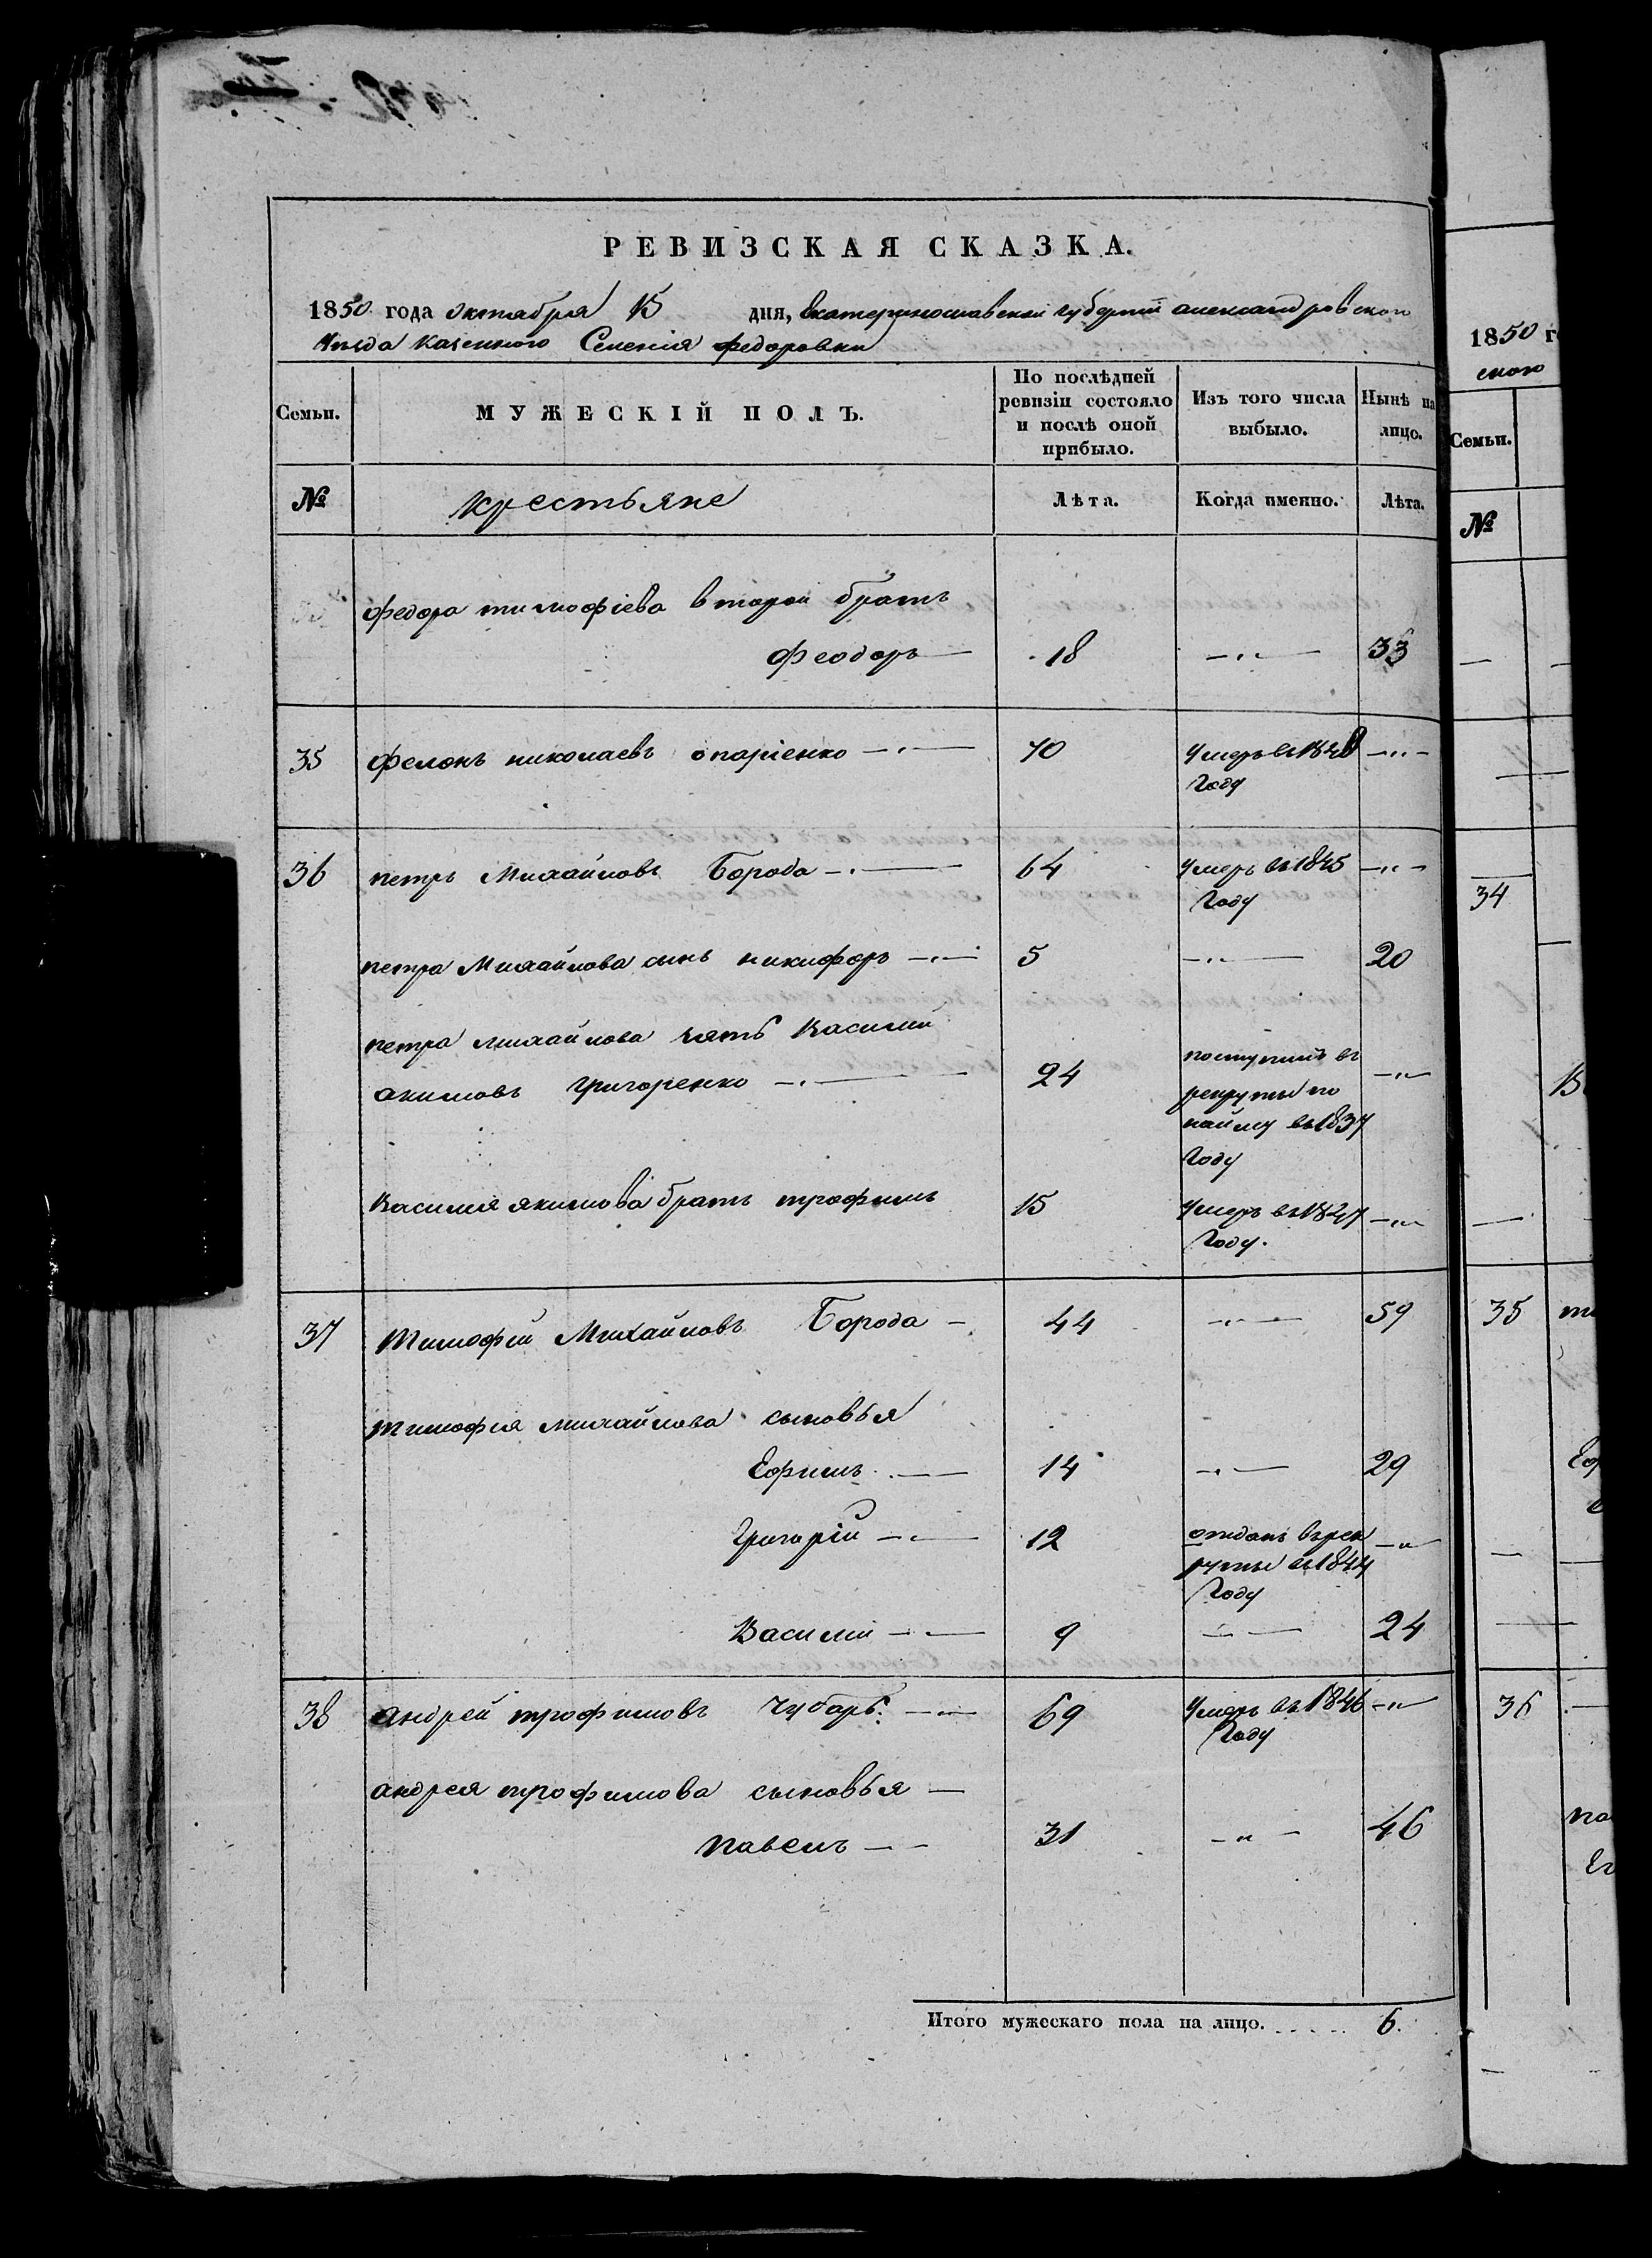 РЕВИЗСКАЯ СКАЗКА.
1850 года октября 15 дня, Екатеринославской губернии александровского
Уезда казенного Селенія федоровки
Семьи. МУЖЕСКІЙ ПОЛЪ. По послѣдней ревизіи состояло и послѣ оной прибыло. Изъ того числа выбыло. Нынѣ на лицо.
№ крестьяне Лѣта. Когда именно. Лѣта.
федора тимофіева второй братъ
Феодоръ 18 33
35 николаевъ 70 Умеръ въ
Году
36 петръ Михайловъ Борода 64 Умеръ въ 1845
Году
петра Михайлова сынъ никифоръ 5 20
петра михайлова зять Василий
акимовъ Григоренко 24 поступилъ въ
рекруты по
найму въ 1837
Году
Василия якимова братъ трофимъ 15 Умеръ въ
Году.
37 Тимофій Михайловъ Борода 44 59
тимофия михайлова сыновья
Ефимъ 14 29
Григорій 12 отданъ въ рек
руты въ 1844
Году
Василій 9 24
38 андрей трофимовъ Чубарь 69 Умеръ въ 1846
Году
андрея трофимова сыновья
павелъ 31 46
Итого мужескаго пола на лицо. 6.
1850
ского
Семьи.
№
34
35
36